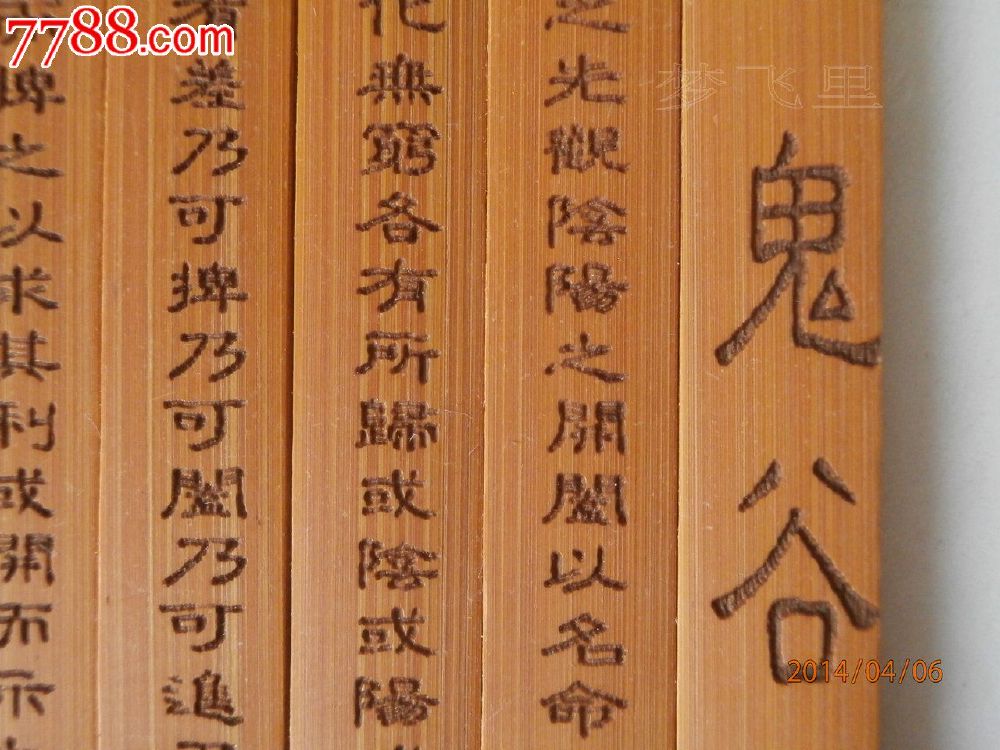 鬼谷
之光觀陰陽之開闔以名命
化無窮各有所歸或陰或陽
差乃可捭乃可闔乃可進
捭之以求其利或開而示
7788.com
梦飞里
2014/04/06